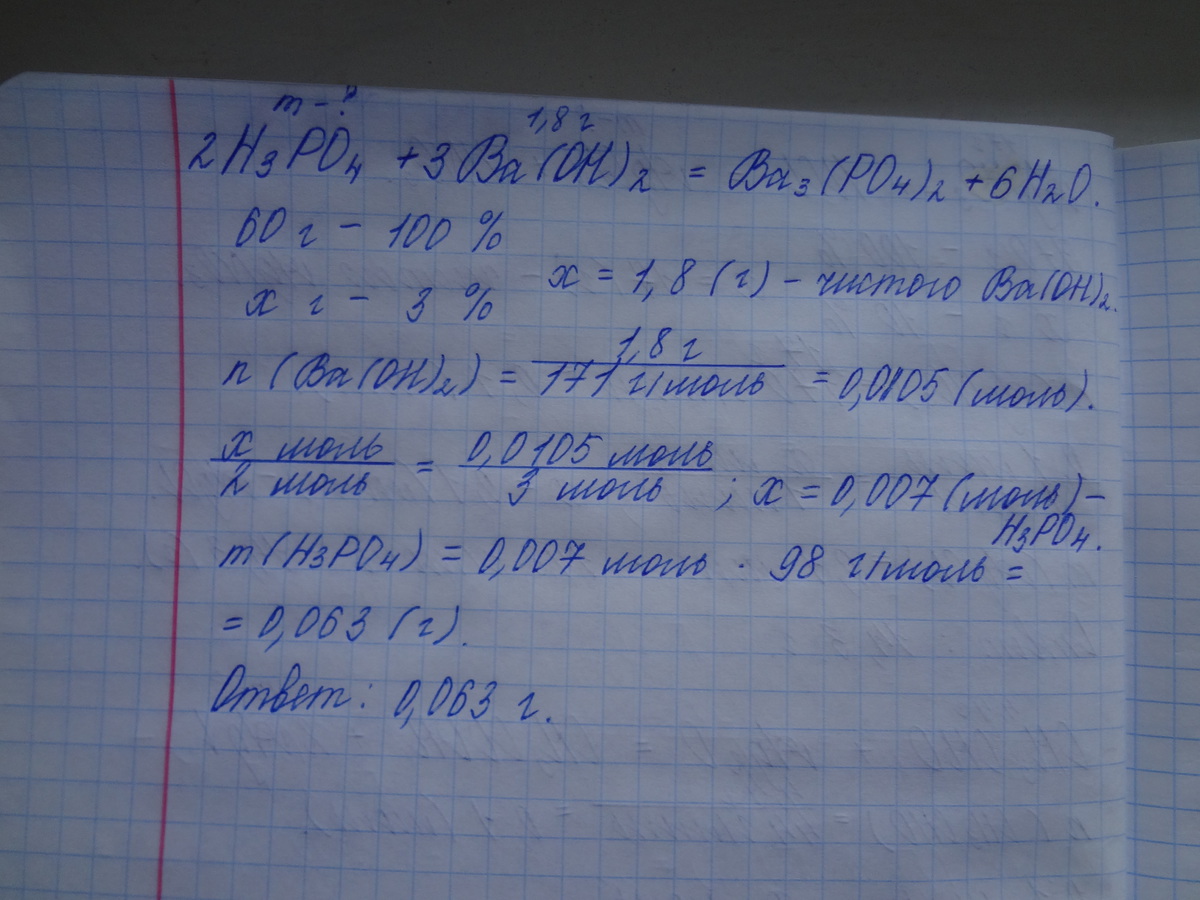 m - ?
1,8 г
2H₃PO₄ + 3Ba(OH)₂ = Ba₃(PO₄)₂ + 6H₂O.
60 г - 100 %
x г - 3 %
x = 1,8 (г) - чистого Ba(OH)₂.
n (Ba(OH)₂) = 1,8 г / 171 г/моль = 0,0105 (моль).
x моль / 2 моль = 0,0105 моль / 3 моль ; x = 0,007 (моль) -
H₃PO₄.
m(H₃PO₄) = 0,007 моль · 98 г/моль =
= 0,063 (г).
Ответ: 0,063 г.